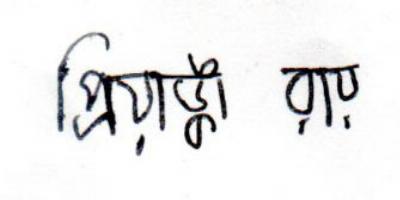 প্রিয়াঙ্কী রায়